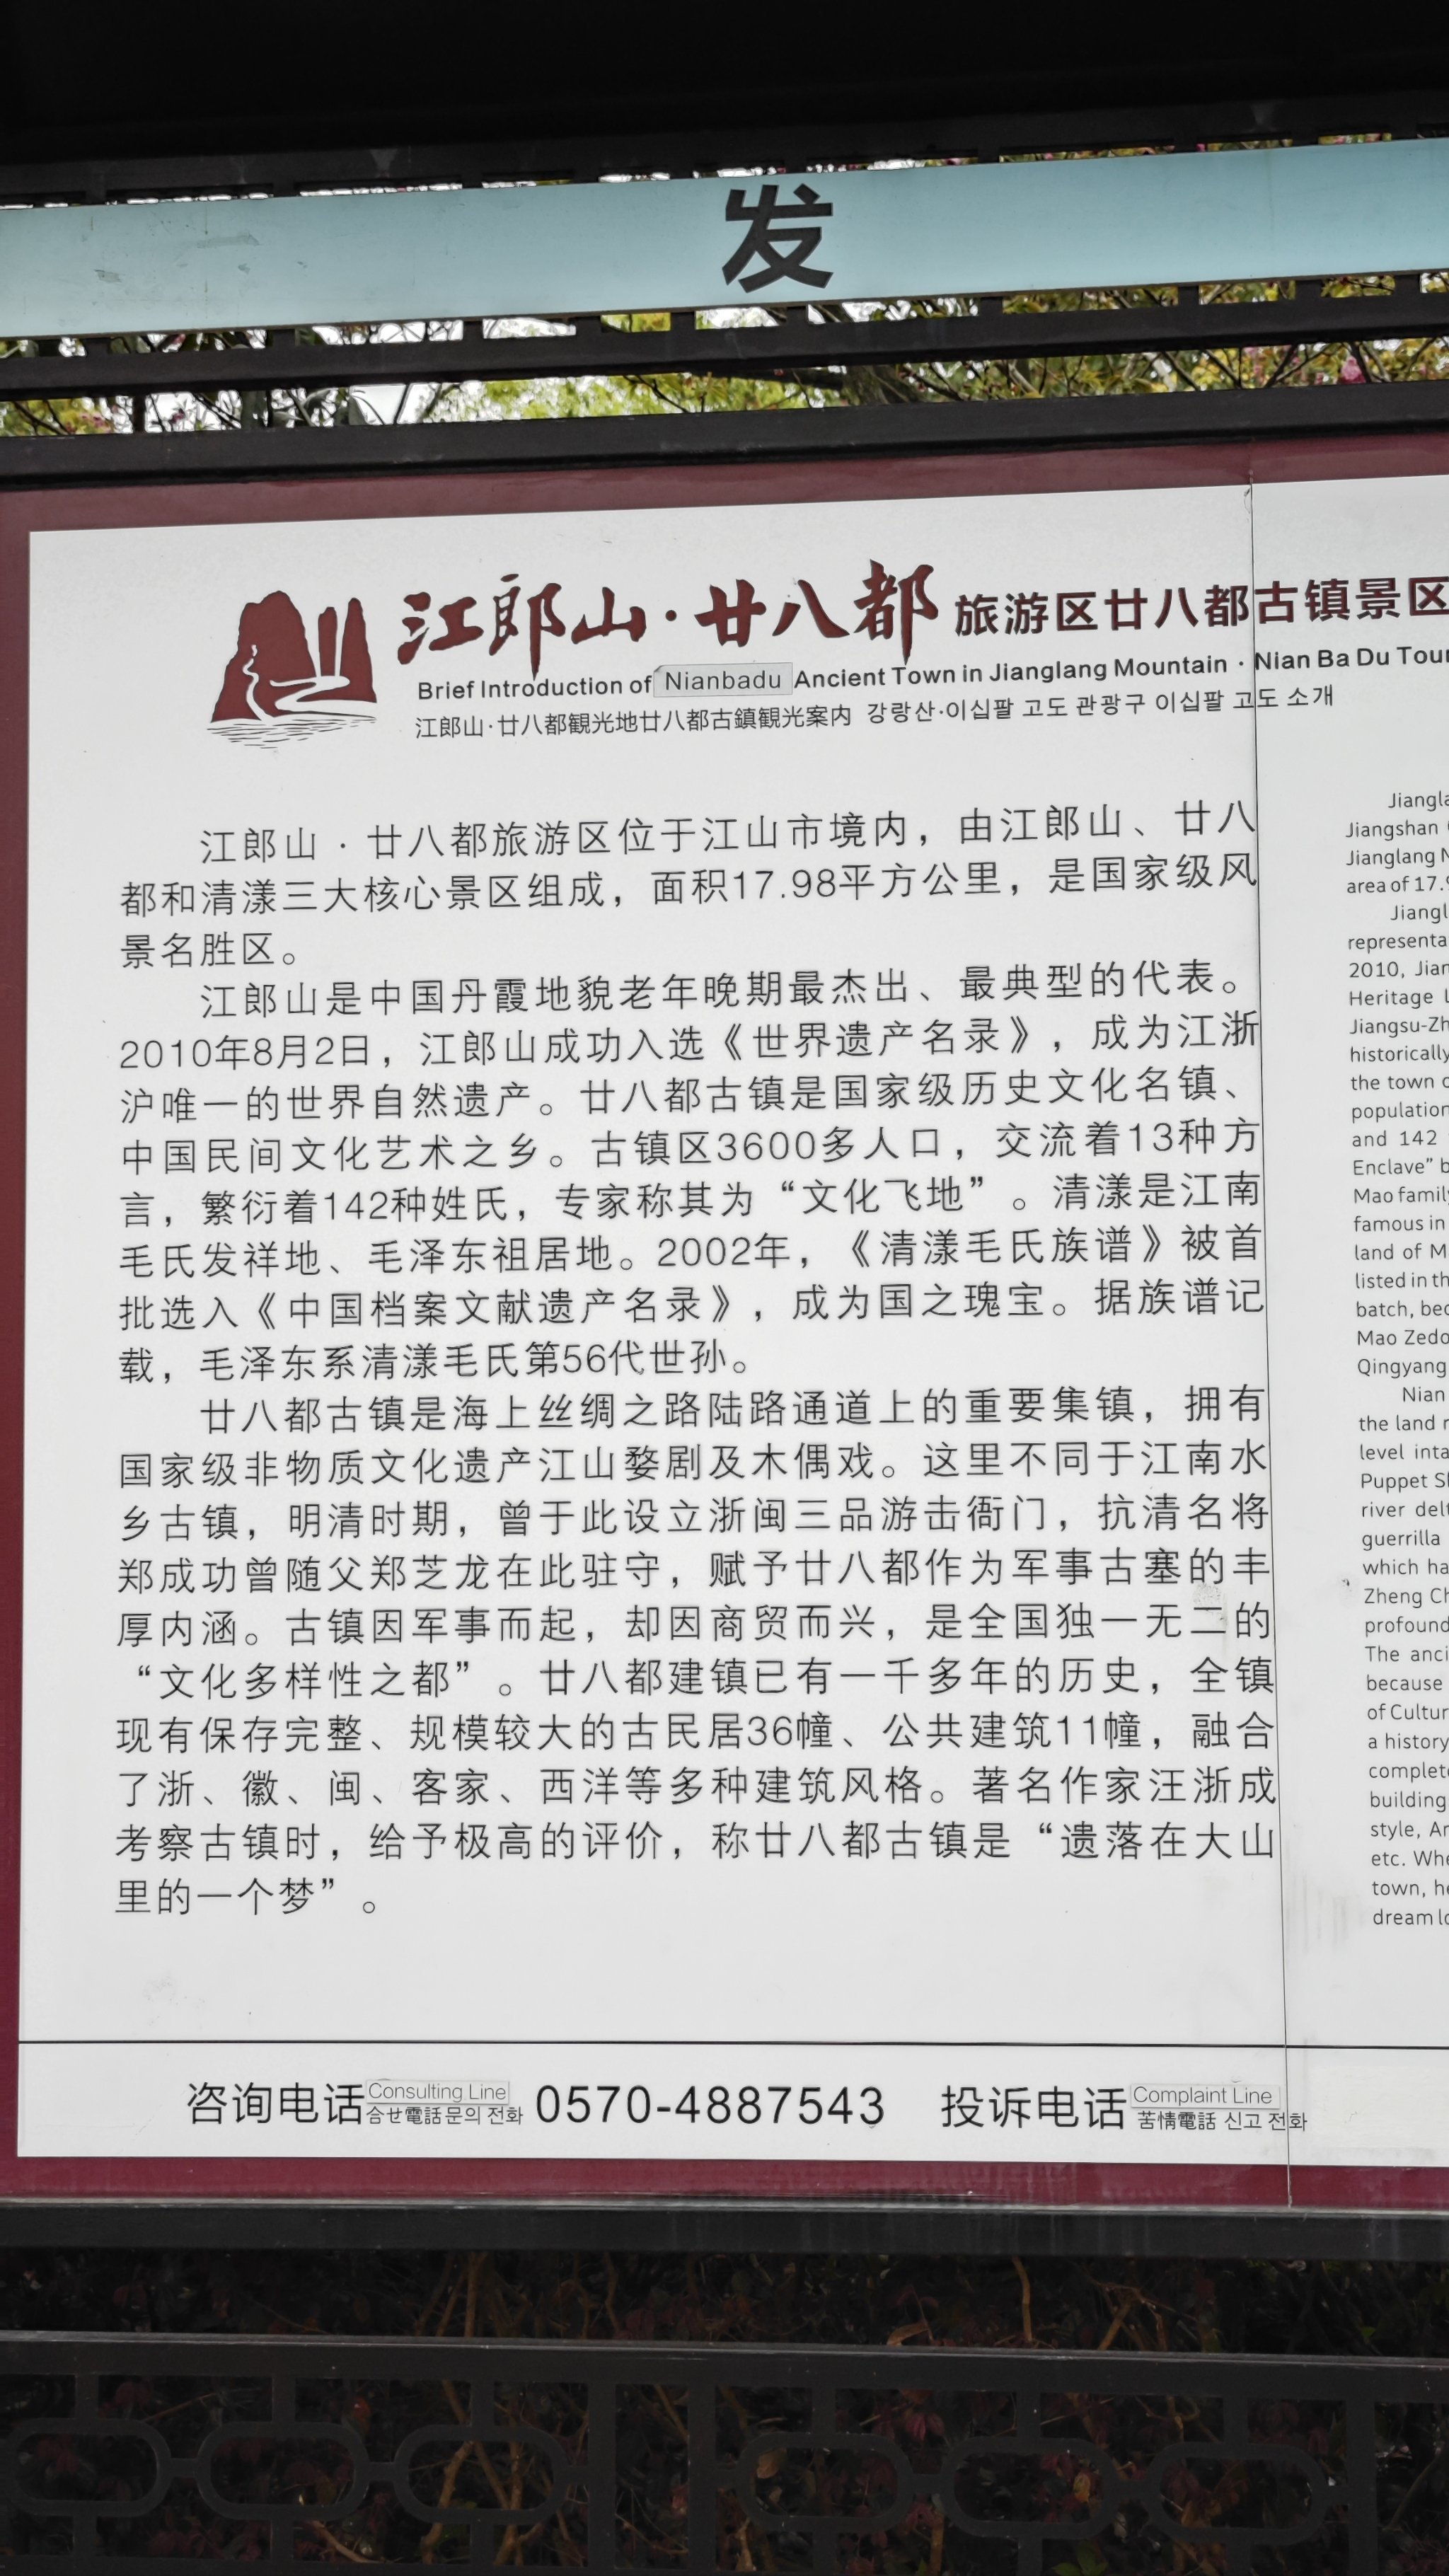 发
江郎山·廿八都 旅游区廿八都古镇景区
Brief Introduction of Nianbadu Ancient Town in Jianglang Mountain · Nian Ba Du
江郎山·廿八都観光地廿八都古鎮観光案内 강랑산·이십팔 고도 관광구 이십팔 고도 소개
江郎山·廿八都旅游区位于江山市境内，由江郎山、廿八
都和清漾三大核心景区组成，面积17.98平方公里，是国家级风
景名胜区。
江郎山是中国丹霞地貌老年晚期最杰出、最典型的代表。
2010年8月2日，江郎山成功入选《世界遗产名录》，成为江浙
沪唯一的世界自然遗产。廿八都古镇是国家级历史文化名镇、
中国民间文化艺术之乡。古镇区3600多人口，交流着13种方
言，繁衍着142种姓氏，专家称其为“文化飞地”。清漾是江南
毛氏发祥地、毛泽东祖居地。2002年，《清漾毛氏族谱》被首
批选入《中国档案文献遗产名录》，成为国之瑰宝。据族谱记
载，毛泽东系清漾毛氏第56代世孙。
廿八都古镇是海上丝绸之路陆路通道上的重要集镇，拥有
国家级非物质文化遗产江山婺剧及木偶戏。这里不同于江南水
乡古镇，明清时期，曾于此设立浙闽三品游击衙门，抗清名将
郑成功曾随父郑芝龙在此驻守，赋予廿八都作为军事古塞的丰
厚内涵。古镇因军事而起，却因商贸而兴，是全国独一无二的
“文化多样性之都”。廿八都建镇已有一千多年的历史，全镇
现有保存完整、规模较大的古民居36幢、公共建筑11幢，融合
了浙、徽、闽、客家、西洋等多种建筑风格。著名作家汪浙成
考察古镇时，给予极高的评价，称廿八都古镇是“遗落在大山
里的一个梦”。
Jiangshan
Jianglang
area of 17.9
2010,
Heritage
historically
the town
population
and 142
Enclave”
Mao family
famous in
land of
listed in
batch,
Qingyang
Nian
the land
level
Puppet
river
guerrilla
which
Zheng
profound
The
because
a history
building
style,
etc.
town,
dream
咨询电话 Consulting Line 合せ電話 문의 전화 0570-4887543 投诉电话 Complaint Line 苦情電話 신고 전화